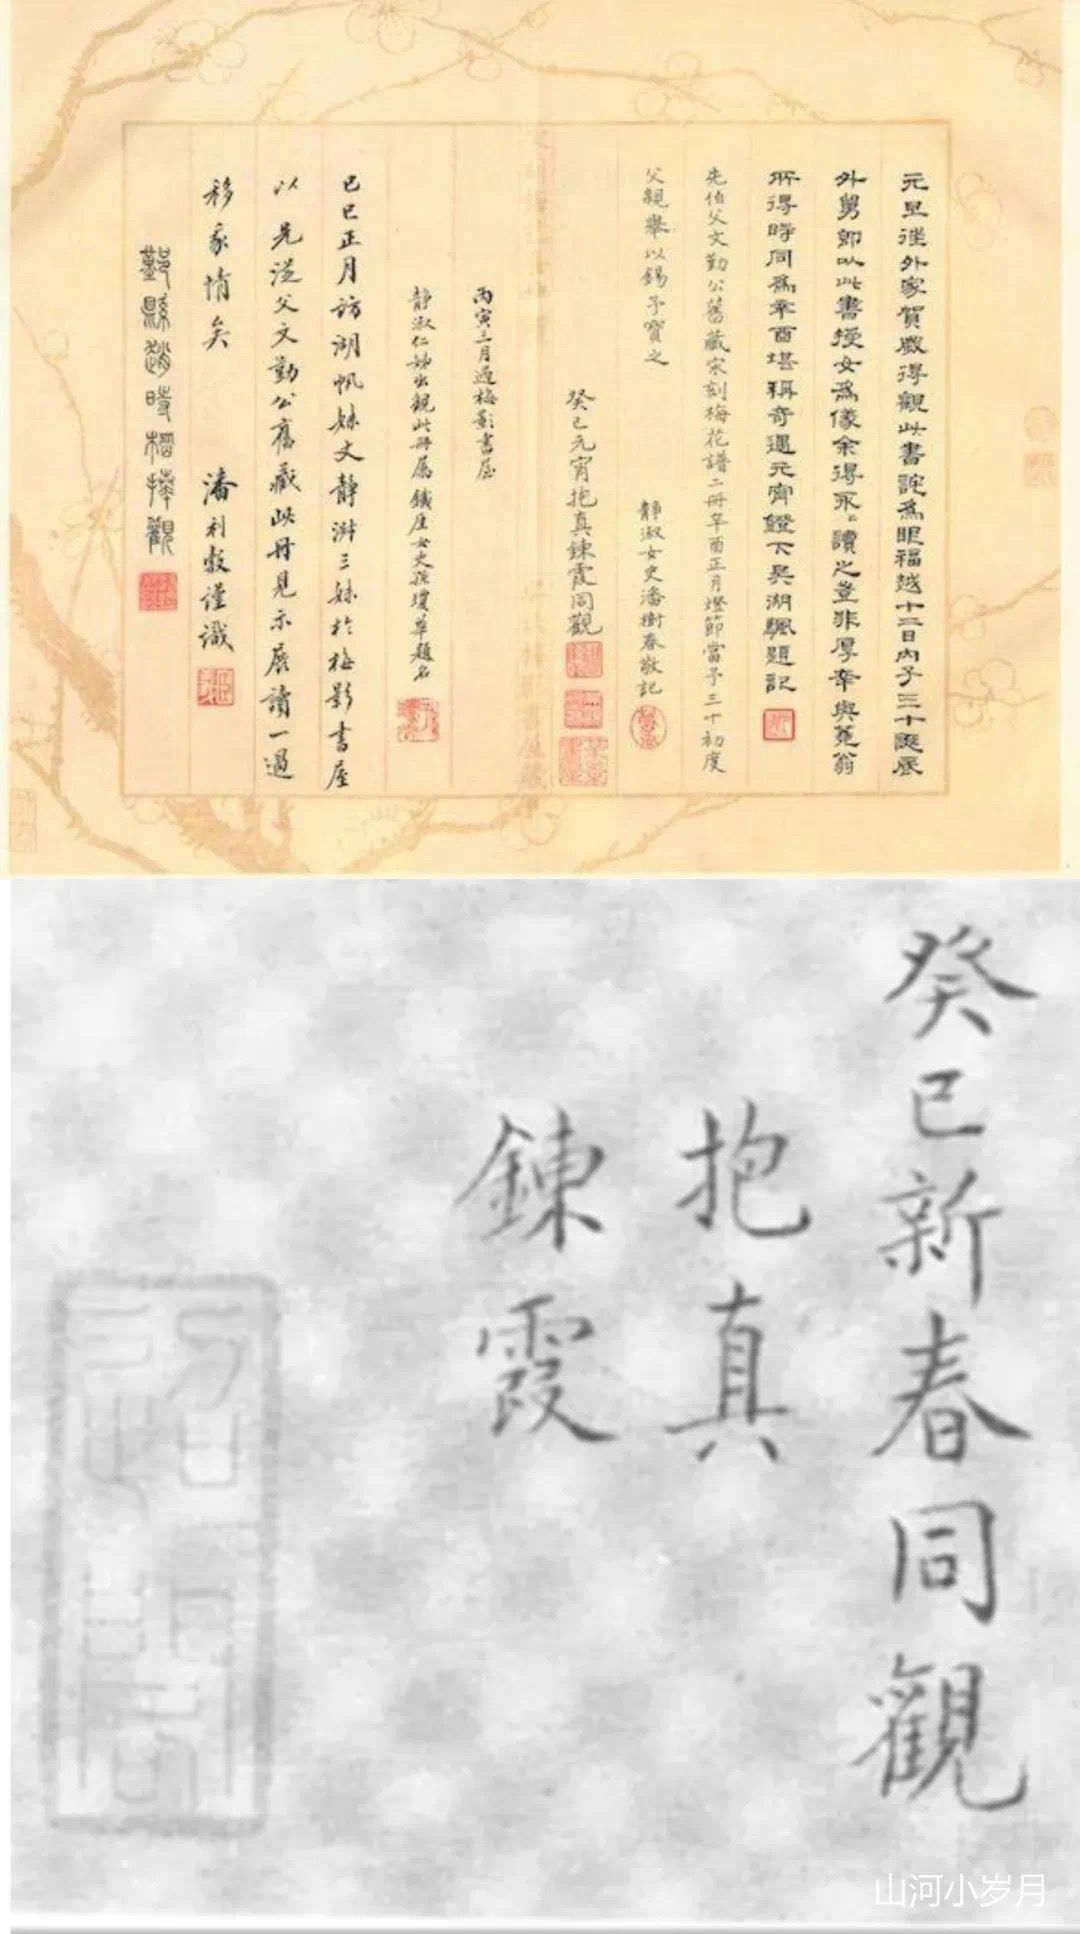 元旦往外家賀歲得觀此書詫為眼福越十二日內子三十誕辰
外舅即以此書授女為儀余得永永讀之豈非厚幸與蕘翁
所得時同為辛酉堪稱奇遇元宵鐙下吳湖颿題記
先伯父文勤公舊藏宋刻梅花譜二冊辛酉正月燈節當予三十初度
父親舉以錫予寶之
靜淑女史潘樹春敬記
癸巳元宵抱真鍊霞同觀
丙寅三月過梅影書屋
靜淑仁姊出觀此冊屬鐵厓女史孫瓊華題名
己巳正月訪湖帆妹丈靜淑三妹於梅影書屋
以先從父文勤公舊藏此冊見示展讀一過
移我情矣 潘利穀謹識
鄞縣趙時棡捧觀
癸巳新春同觀
抱真
鍊霞
山河小岁月